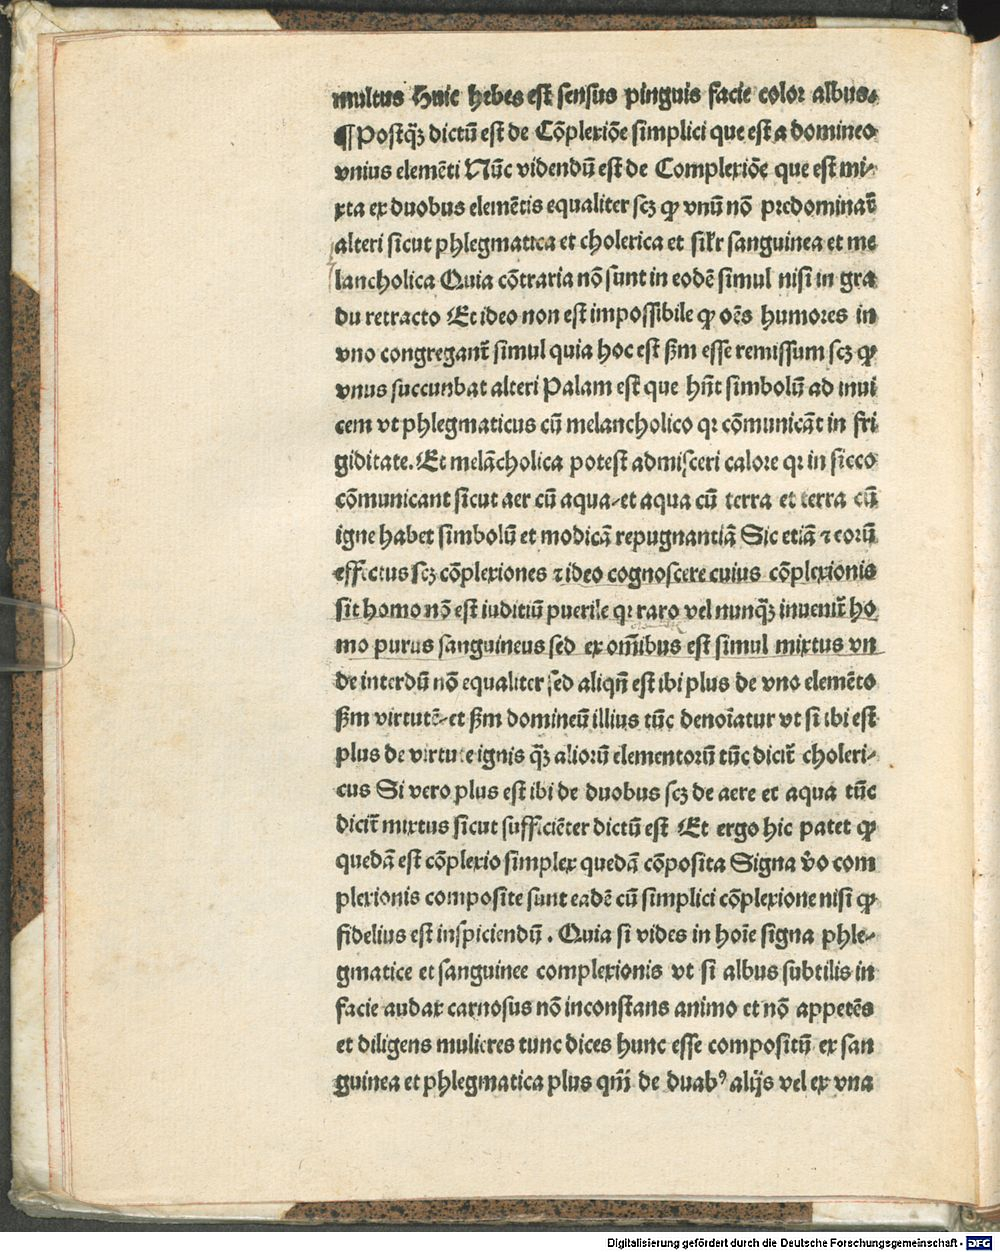 multus Huic hebes est sensus pinguis facie color albus.
¶ Postqȝ dictū est de Cōplexiōe simplici que est a domineo
vnius elemēti Nūc videndū est de Complexiōe que est mi-
xta ex duobus elemētis equaliter scȝ ꝙ vnū nō predominat̄
alteri sicut phlegmatica et cholerica et silr̄ sanguinea et me
lancholica Quia cōtraria nō sunt in eodē simul nisi in gra
du retracto Et ideo non est impossibile ꝙ oēs humores in
vno congregant̄ simul quia hoc est ẜm esse remissum scȝ ꝙ
vnus succunbat alteri Palam est que hn̄t simbolū ad inui
cem vt phlegmaticus cū melancholico qꝛ cōmunicāt in fri
giditate. Et melācholica potest admisceri calore qꝛ in sicco
cōmunicant sicut aer cū aqua-et aqua cū terra et terra cū
igne habet simbolū et modicā repugnantiā Sic etiā ⁊ eorū
effectus scȝ cōplexiones ⁊ ideo cognoscere cuius cōplexionis
sit homo nō est iuditiū puerile qꝛ raro vel nunqȝ̄ inuenit̄ ho
mo purus sanguineus sed ex om̄ibus est simul mixtus vn
de interdū nō equaliter sed aliqn̄ est ibi plus de vno elemēto
ẜm virtutē-et ẜm domineū illius tūc denoīatur vt si ibi est
plus de virtute ignis qȝ̄ aliorū elementorū tūc dicit̄ choleri-
cus Si vero plus est ibi de duobus scȝ de aere et aqua tūc
dicit̄ mixtus sicut sufficiēter dictū est Et ergo hic patet ꝙ
quedā est cōplexio simplex quedā cōposita Signa v̄o com
plexionis composite sunt eadē cū simplici cōplexione nisi ꝙ
fidelius est inspiciendū . Quia si vides in hoīe signa phle-
gmatice et sanguinee complexionis vt si albus subtilis in
facie audax carnosus nō inconstans animo et nō appetēs
et diligens mulieres tunc dices hunc esse compositū ex san
guinea et phlegmatica plus qm̄ de duabꝰ alijs vel ex vna
Digitalisierung gefördert durch die Deutsche Forschungsgemeinschaft - DFG